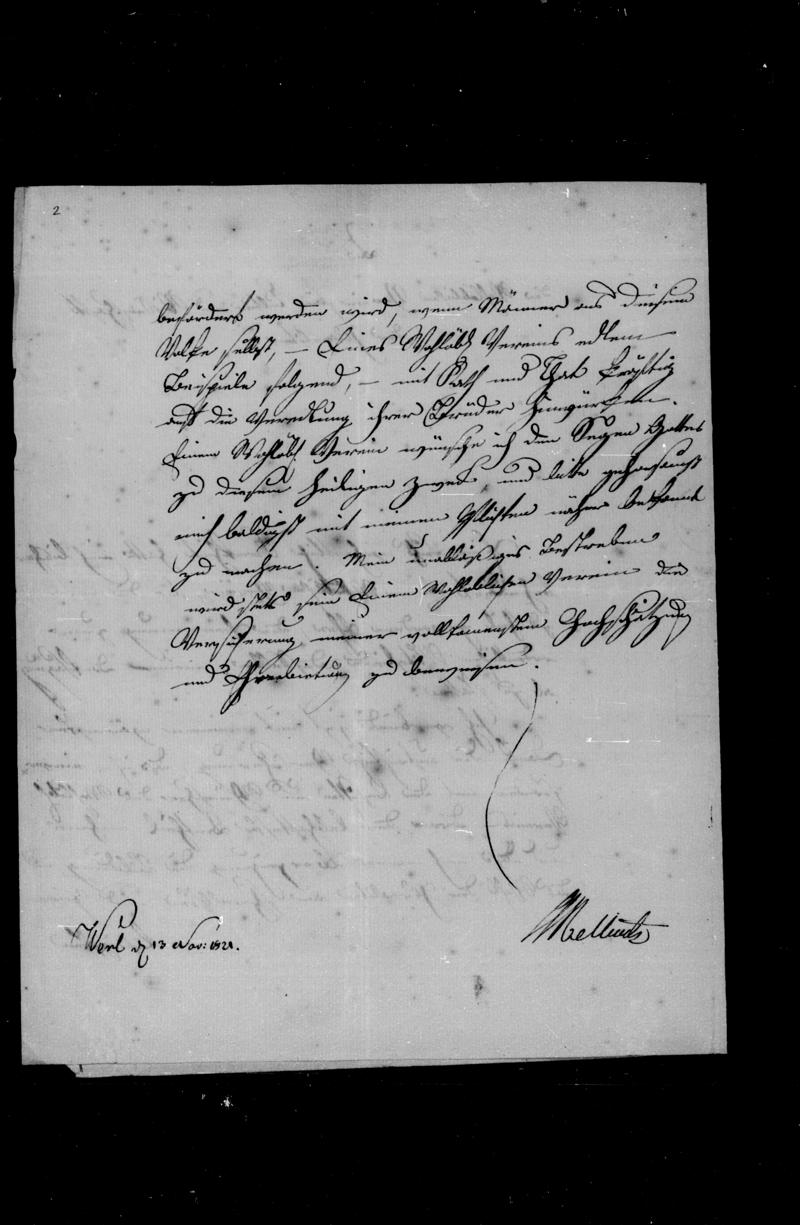 2
befördert werden wird, wenn Männer aus diesem
Volke selbst, – Eines Wohllöbl. Vereins edlem
Beispiele folgend, – mit Rath und That kräftig
auf die Veredlung ihrer Brüder hinwürken.
Einem Wohllöbl. Verein wünsche ich den Segen Gottes
zu diesem heiligen Zweck, und bitte gehorsamst
mich baldigst mit meinen Pflichten näher bekannt
zu machen. Mein unablässiges Bestreben
wird stets sein Einem Wohllöblichen Verein die
Versicherung meiner vollkommenstem Hochschätzung
und Ehrerbietung zu beweisen.
Werl d 13 Nov: 1821.